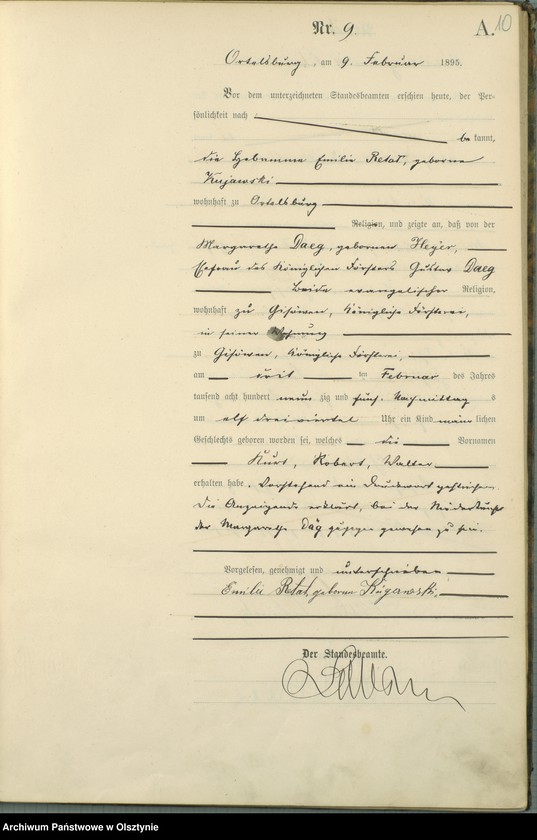 Nr. 9.
A.
10
Ortelsburg, am 9. Februar 1895.
Vor dem unterzeichneten Standesbeamten erschien heute, der Per-
sönlichkeit nach
be kannt,
die Hebamme Emilie Retat, geborene
Kujawski
wohnhaft zu Ortelsburg
Religion, und zeigte an, daß von der
Margarethe Daeg, geborenen Heyer,
Ehefrau des Königlichen Försters Gustav Daeg
beide evangelischer Religion,
wohnhaft zu Gisöwen, Königliche Försterei,
in seiner Wohnung
zu Gisöwen, Königliche Försterei,
am ten Februar des Jahres
tausend acht hundert neun zig und fünf, Nachmittag s
um elf dreiviertel Uhr ein Kind männ lichen
Geschlechts geboren worden sei, welches die Vornamen
Kurt, Robert, Walter
erhalten habe. Vorstehend ein Druckwort gestrichen.
Die Anzeigende erklärt, bei der Niederkunft
der Margarethe Däg zugegen gewesen zu sein.
Vorgelesen, genehmigt und unterschrieben
Emilie Retat, geborene Kujawski.
Der Standesbeamte.
Archiwum Państwowe w Olsztynie